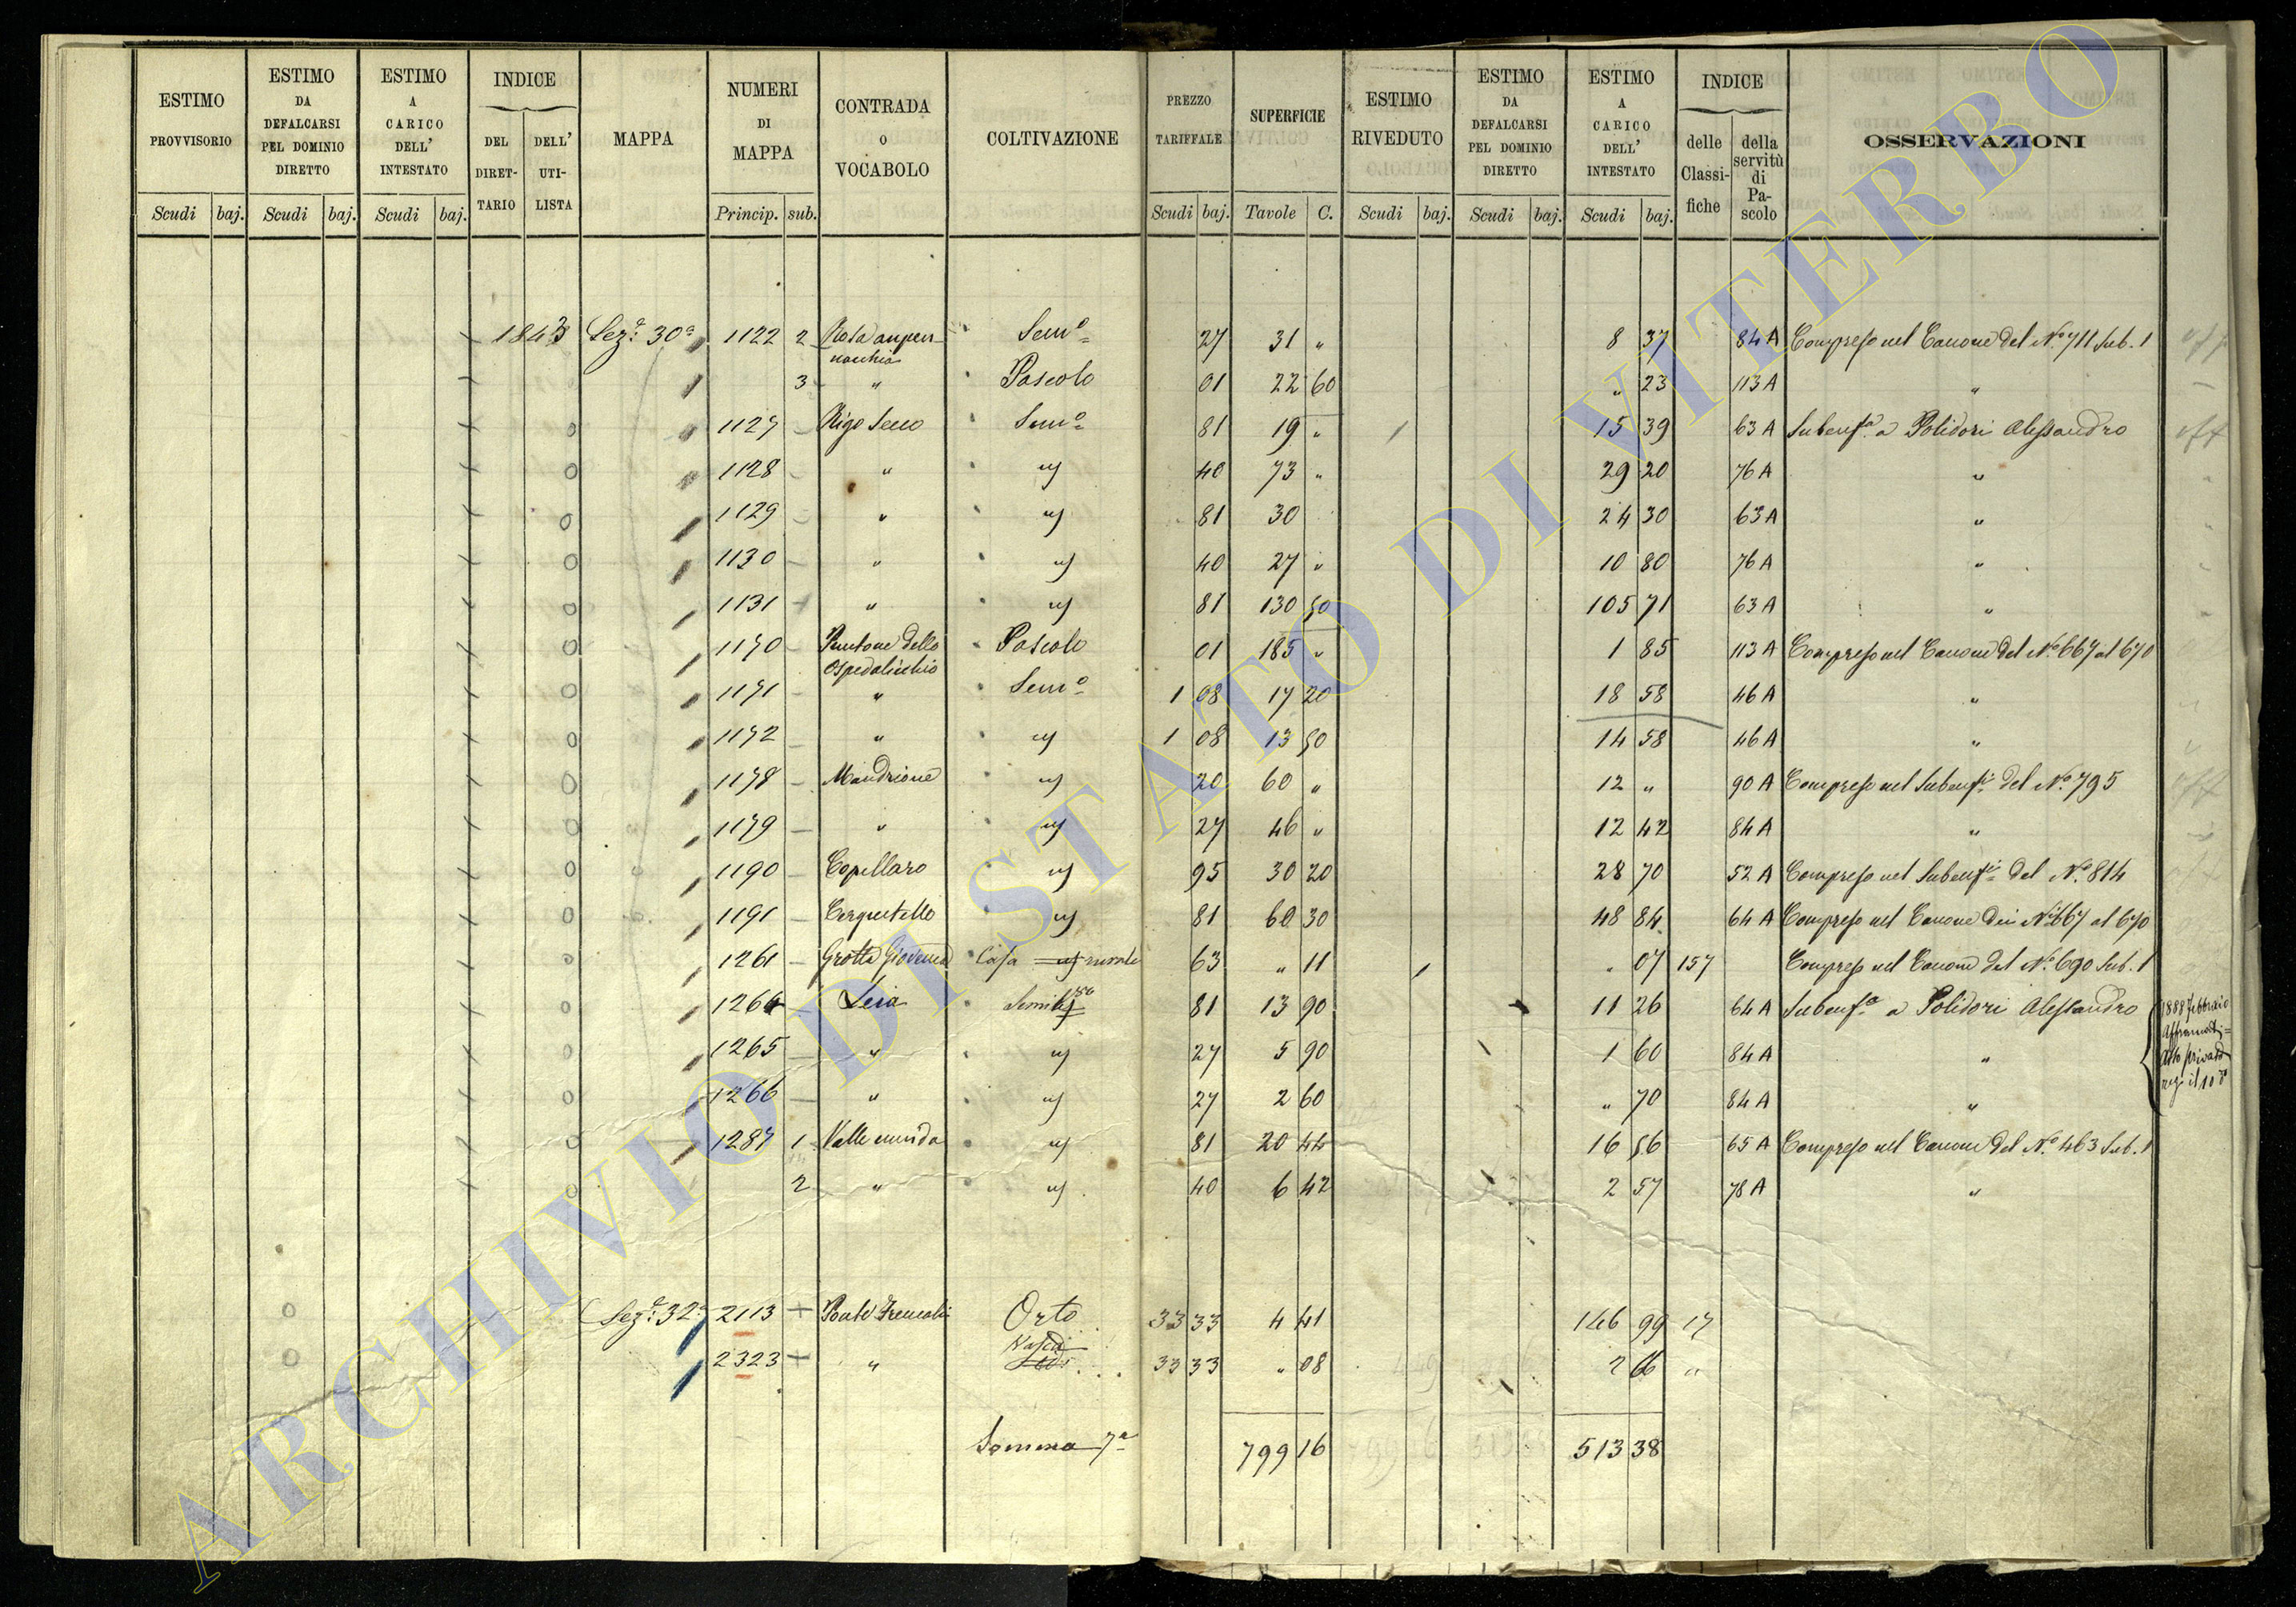 ESTIMO PROVVISORIO | ESTIMO DA DEFALCARSI PEL DOMINIO DIRETTO | ESTIMO A CARICO DELL' INTESTATO | INDICE DEL DIRETTARIO | DELL' UTILISTA | MAPPA | NUMERI DI MAPPA | CONTRADA O VOCABOLO | COLTIVAZIONE | PREZZO TARIFFALE | SUPERFICIE | ESTIMO RIVEDUTO | ESTIMO DA DEFALCARSI PEL DOMINIO DIRETTO | ESTIMO A CARICO DELL' INTESTATO | INDICE delle Classifiche | della servitù di Pascolo | OSSERVAZIONI
Scudi baj. Scudi baj. Scudi baj. Princip. sub. Scudi baj. Tavole C. Scudi baj. Scudi baj. Scudi baj.
Sez.e 30a 1122 2 Semo 27 31 " 8 37 84 A Compreso nel Canone del No 711 Sub. 1
3 " Pascolo 01 22 60 " 23 113 A "
1127 Rigo Secco Semo 81 19 " 15 39 63 A Subenfa a Polidori Alessandro
1128 " " 40 73 " 29 20 76 A "
1129 " " 81 30 24 30 63 A "
1130 " " 40 27 " 10 80 76 A "
1131 " " 81 130 50 105 71 63 A "
1170 Puntone dello Ospedalicchio Pascolo 01 185 " 1 85 113 A Compreso nel Canone del No 667 al 670
1171 " Semo 1 08 17 20 18 58 46 A "
1172 " " 1 08 13 50 14 58 46 A "
1178 Mandrione " 20 60 " 12 " 90 A Compreso nel Subenfi del No 795
1179 " " 27 46 " 12 42 84 A "
1190 Copellaro " 95 30 20 28 70 52 A Compreso nel Subenfi del No 814
1191 Cerquetello " 81 60 30 48 84 64 A Compreso nel Canone dei No 667 al 670
1261 Grotta Casa rurale 63 " 11 " 07 157 Compreso nel Canone del No 690 Sub. 1
1264 Leia 81 13 90 11 26 64 A Subenfa a Polidori Alessandro
1888 Febbraio
atto privato
1265 " " 27 5 90 1 60 84 A "
1266 " " 27 2 60 " 70 84 A "
1287 1 Valle " 81 20 44 16 56 65 A Compreso nel Canone del No 463 Sub. 1
2 " " 40 6 42 2 57 78 A "
Sez.e 32a 2113 Ponte Orto 33 33 4 41 146 99 17
2323 " Vasca 33 33 " 08 2 66 "
Somma 7a 799 16 513 38
ARCHIVIO DI STATO DI VITERBO